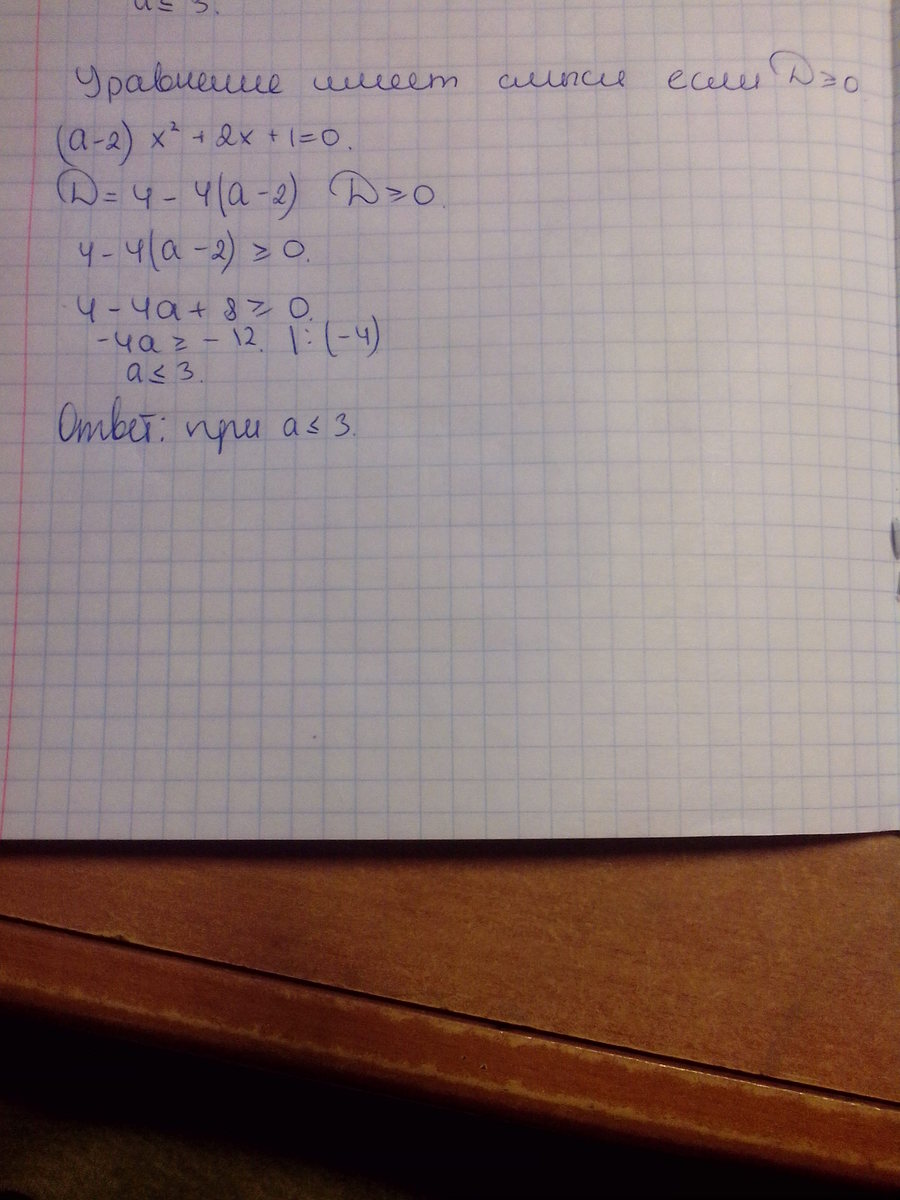 a ≤ 3.
Уравнение имеет смысл если D ≥ 0
(a-2) x² + 2x + 1 = 0.
D = 4 - 4(a-2) D ≥ 0.
4 - 4(a-2) ≥ 0.
4 - 4a + 8 ≥ 0.
-4a ≥ -12. |:(-4)
a ≤ 3.
Ответ: при a ≤ 3.